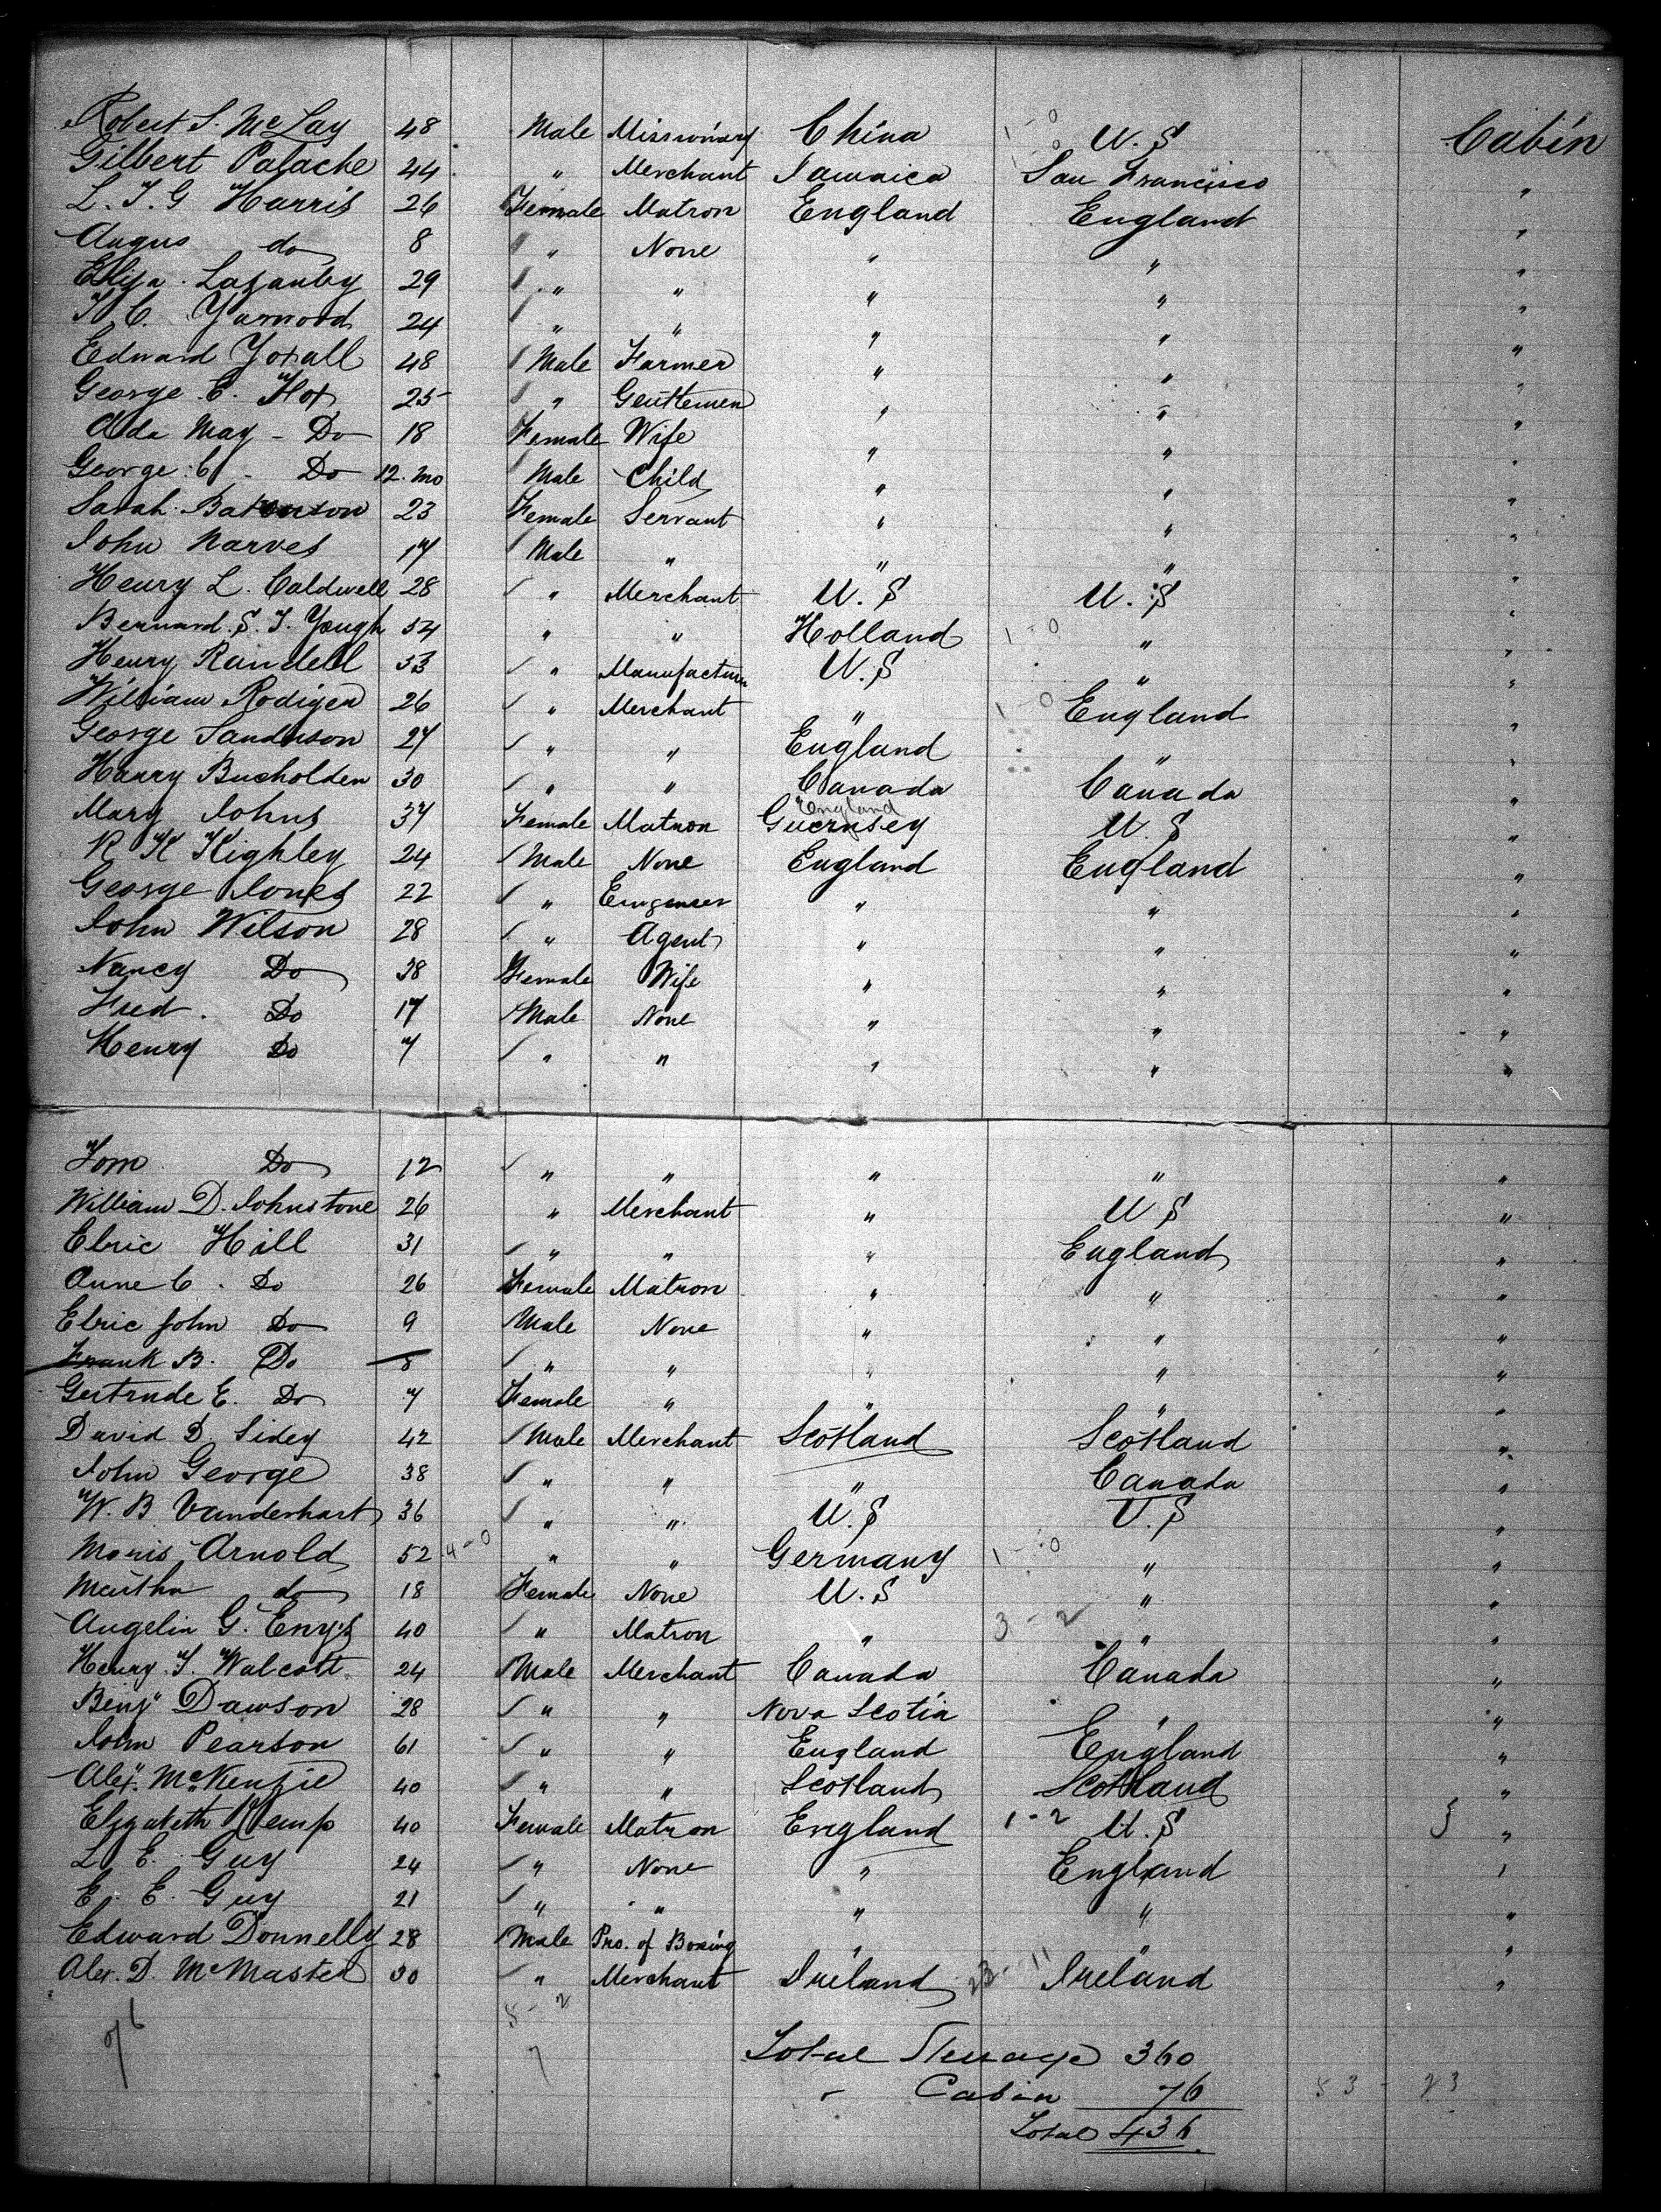 Robert S. McLay 48 Male Missionary China 1-0 U.S Cabin
Gilbert Palache 44 " Merchant Jamaica 1-0 San Francisco "
L. T. G Harris 26 Female Matron England England "
Angus do 8 " None " " "
Eliza Lazanby 29 " " " " "
T C. Yarwood 24 " " " " "
Edward Yoxall 48 Male Farmer " " "
George E. Hox 25 " Gentlemen " " "
Ada May - Do 18 Female Wife " " "
George C - Do 12. mo Male Child " " "
Sarah Batenson 23 Female Servant " " "
John Narves 17 Male " " " "
Henry L. Caldwell 28 " Merchant U.S U.S "
Bernard S. T. Yough 54 " " Holland 1-0 " "
Henry Randell 53 " Manufacturer U.S " "
William Rodigen 26 " Merchant " 1-0 England "
George Sanderson 27 " " England " "
Harry Bucholden 30 " " Canada Canada "
England
Mary Johns 37 Female Matron Guernsey U.S "
R K Kighley 24 Male None England England "
George Jones 22 " Emgeneer " " "
John Wilson 28 " Agent " " "
Nancy Do 38 Female Wife " " "
Fred. Do 17 Male None " " "
Henry Do 7 " " " " "
Tom Do 12 " " " " "
William D. Johnstone 26 " Merchant " U S "
Elric Hill 31 " " " England "
Anne C. Do 26 Female Matron " " "
Elric John Do 9 Male None " " "
Frank B. Do 8 " " " " "
Gertrude E. Do 7 Female " " " "
David D. Sidey 42 Male Merchant Scotland Scotland "
John George 38 " " " Canada "
W. B Vanderhart 36 " " U.S U.S "
Moris Arnold 52 4-0 " " Germany 1-0 " "
Martha do 18 Female None U.S " "
Angelin G. Enys 40 " Matron " 3-2 " "
Henry T. Walcott 24 Male Merchant Canada Canada "
Benj" Dawson 28 " " Nova Scotia " "
John Pearson 61 " " England England "
Alex. McKenzie 40 " " Scotland Scotland "
Elizabeth Kemp 40 Female Matron England 1-2 U.S "
L. E. Guy 24 " None " England "
E. E. Guy 21 " " " " "
Edward Donnelly 28 Male Pro. of Boxing " " "
Alex. D. McMaster 30 " Merchant Ireland 23-11 Ireland "
76 5-2
7
Total Steerage 360
" Cabin 76 53-23
Total 436